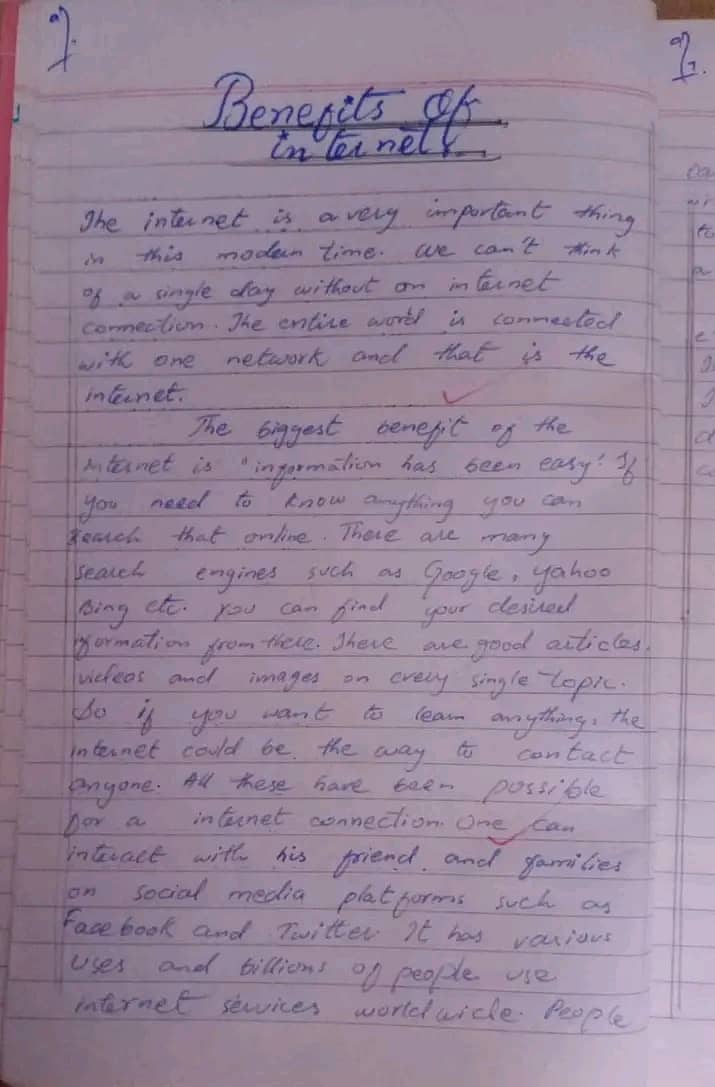 Benefits Of
internet
The internet is a very important thing
in this modern time. We can't think
of a single day without on internet
connection. The entire word is connected
with one network and that is the
internet.
The biggest benefit of the
internet is "information has been easy! If
you need to know anything you can
search that online. There are many
search engines such as Google, yahoo
Bing etc. you can find your desired
formation from there. There are good articles,
videos and images on every single topic.
So if you want to learn anything, the
internet could be the way to contact
anyone. All these have been possible
for a internet connection. One can
interact with his friend and families
on social media platforms such as
Facebook and Twitter. It has various
uses and billions of people use
internet services worldwide. People